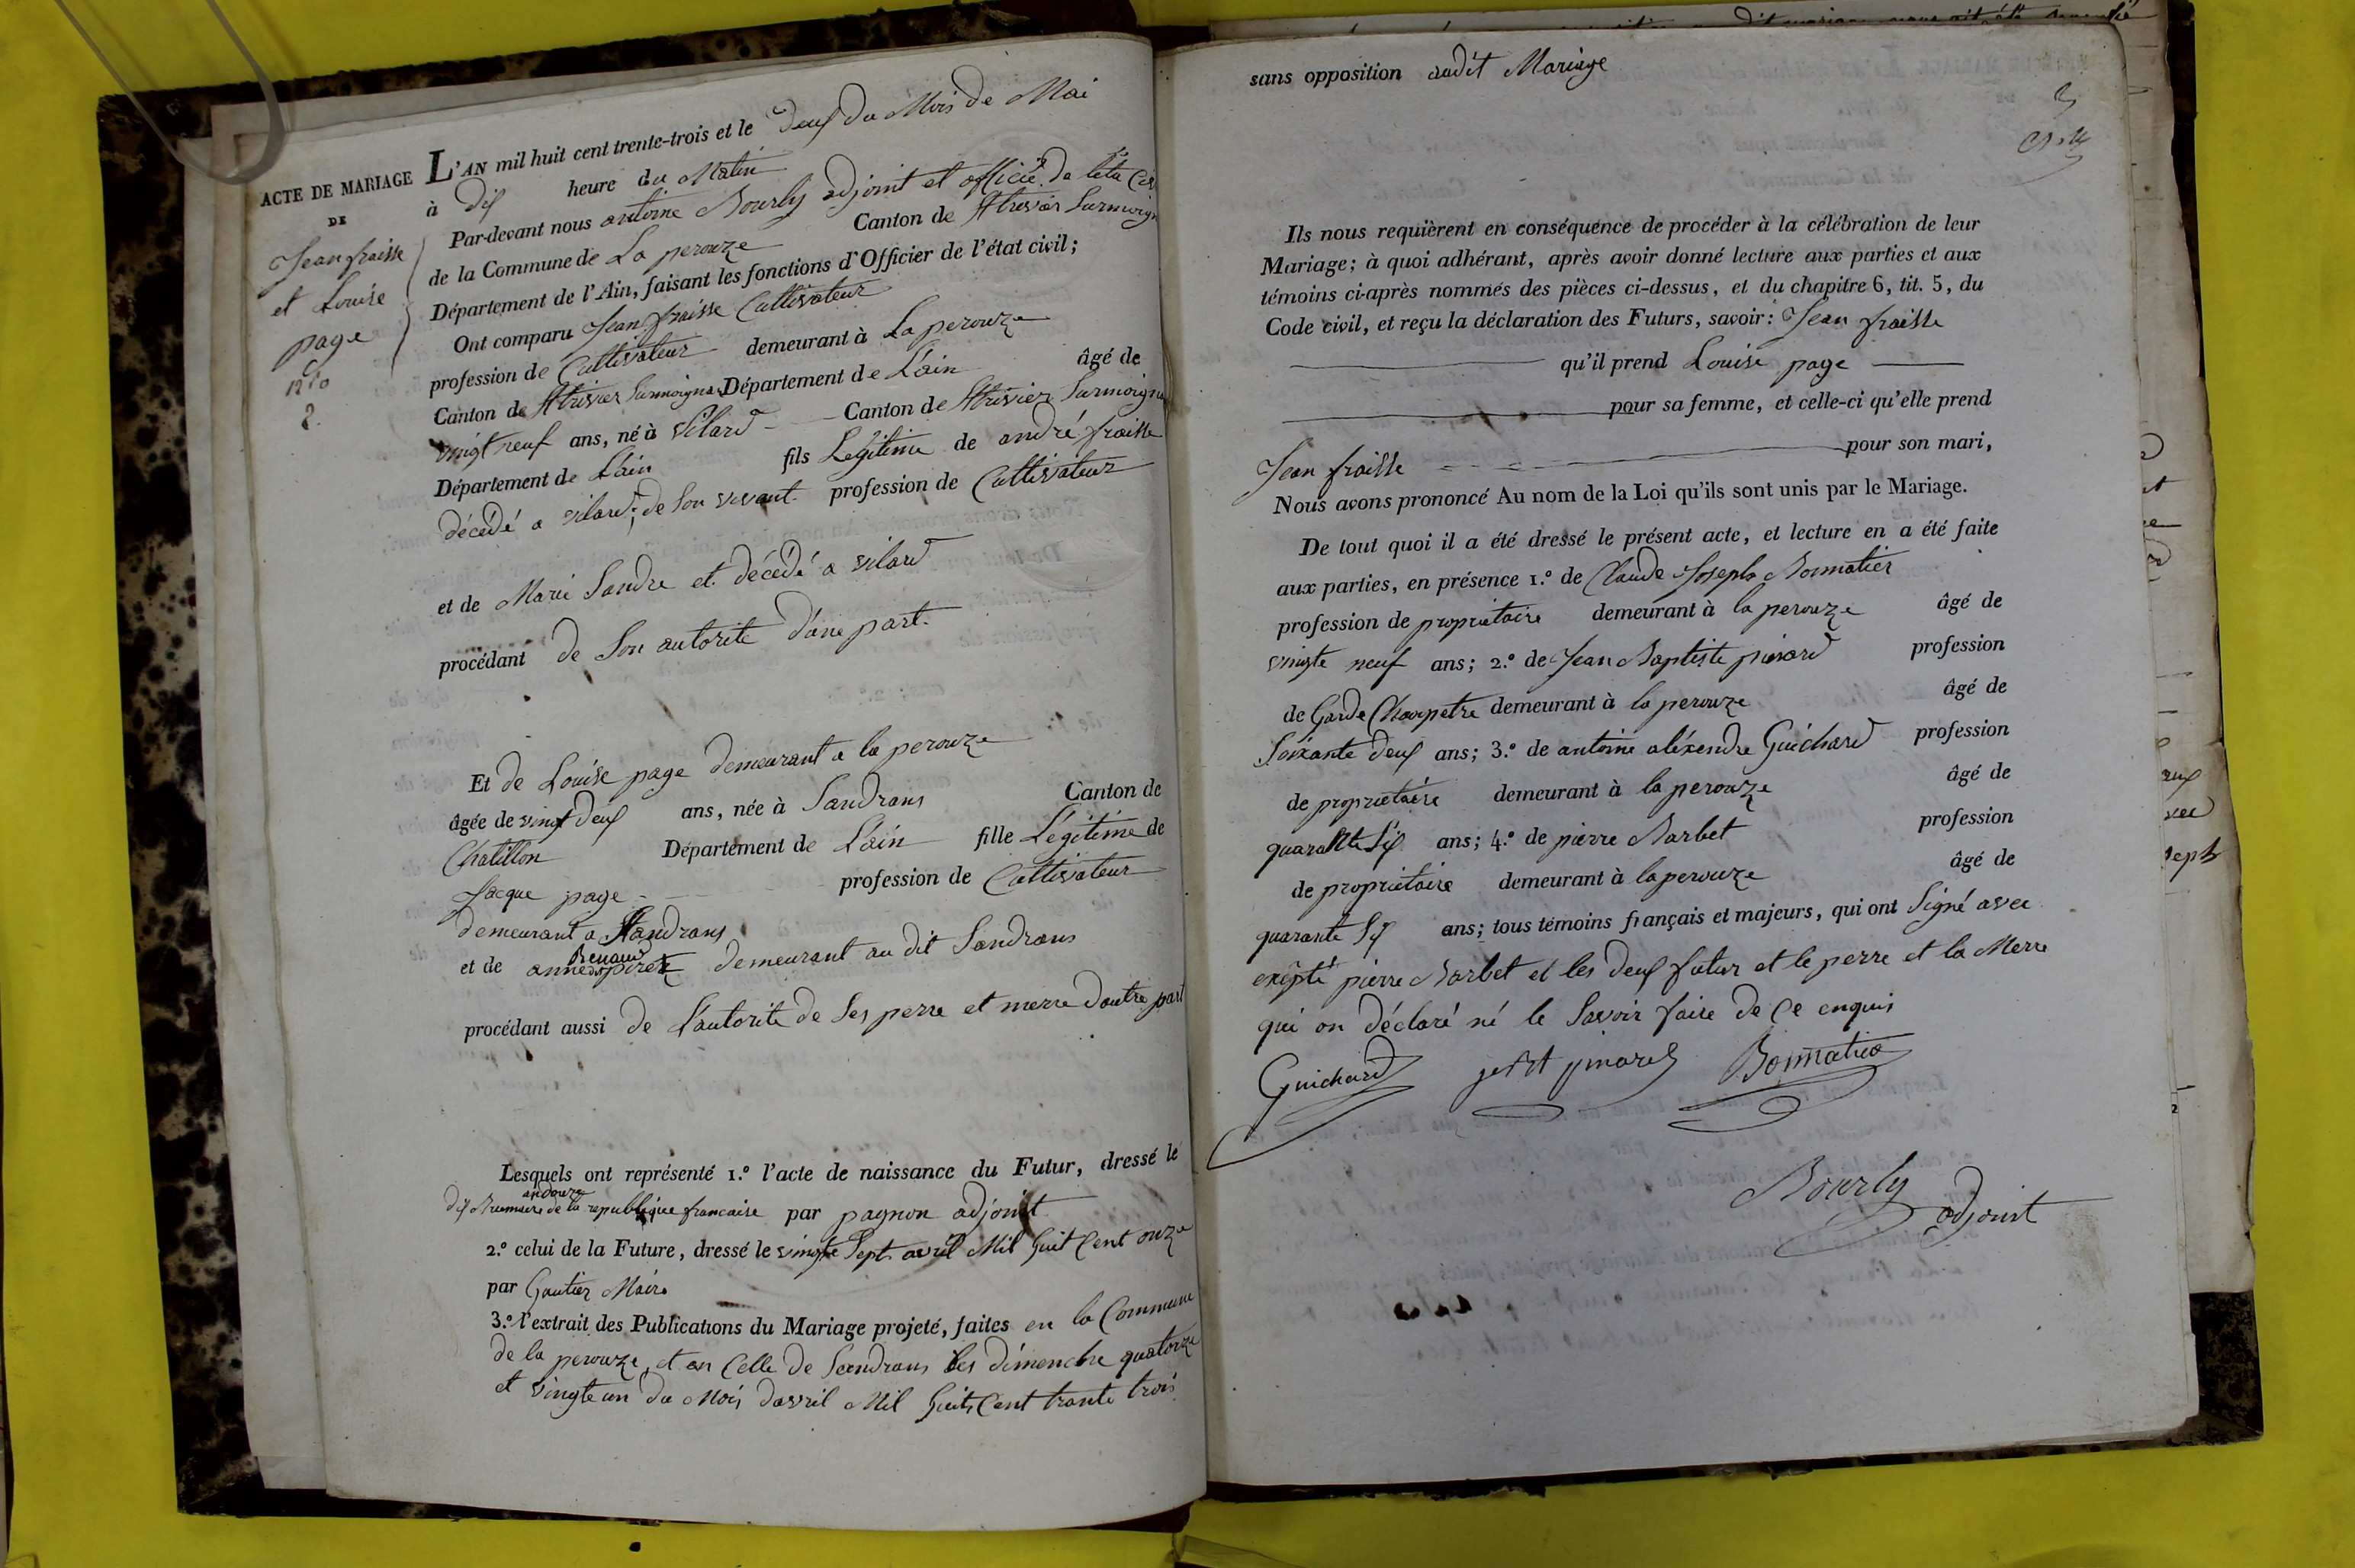 ACTE DE MARIAGE
DE
Jean fraisse
et Louise
page
n.ro
2.
L'AN mil huit cent trente-trois et le Deux du Mois de Mai
à Dix heure du Matin
Par-devant nous antoine Bourly adjoint et officié de léta Civ
de la Commune de La perouze Canton de St trivier Surmoign
Département de l'Ain, faisant les fonctions d'Officier de l'état civil;
Ont comparu Jean fraisse Cultivateur
profession de Cultivateur demeurant à La perouze
Canton de St trivier Surmoignan Département de L'ain âgé de
vingt neuf ans, né à Vilard Canton de St trivier Surmoigna
Département de L'ain fils Légitime de andré fraisse
décédé a vilard; de Son vivant profession de Cultivateur
et de Marie Sandre et décédé a vilard
procédant de Son autorite d'une part.
Et de Louise page demeurant a la perouze
âgée de vingt Deux ans, née à Sandrans Canton de
Chatillon Département de L'ain fille Légitime de
Jacque page profession de Cultivateur
demeurant a Sandrans
et de anne Renaud demeurant au dit Sandrans
procédant aussi de L'autorite de Ses perre et merre Dautre part
Lesquels ont représenté 1.º l'acte de naissance du Futur, dressé le
an Douze
Dix Brumaire de la republique francaise par pagnon adjoint
2.º celui de la Future, dressé le vingte Sept avril Mil huit Cent onze
par Gautier Maire
3.º l'extrait des Publications du Mariage projeté, faites en la Commune
de la perouze et en Celle de Sandrans les dimenche quatorze
et vingte un du Mois davril Mil huit Cent trante trois
sans opposition audit Mariage
Ils nous requièrent en conséquence de procéder à la célébration de leur
Mariage; à quoi adhérant, après avoir donné lecture aux parties et aux
témoins ci-après nommés des pièces ci-dessus, et du chapitre 6, tit. 5, du
Code civil, et reçu la déclaration des Futurs, savoir: Jean fraisse
qu'il prend Louise page
pour sa femme, et celle-ci qu'elle prend
Jean fraisse pour son mari,
Nous avons prononcé Au nom de la Loi qu'ils sont unis par le Mariage.
De tout quoi il a été dressé le présent acte, et lecture en a été faite
aux parties, en présence 1.º de Claude Joseph Bonmatier
profession de propriétaire demeurant à la perouze âgé de
vingte neuf ans; 2.º de Jean Baptiste pinard profession
de Garde Champetre demeurant à la perouze âgé de
Soixante Deux ans; 3.º de antoine aléxendre Guichard profession
de propriétaire demeurant à la perouze âgé de
quarante Six ans; 4.º de pierre Barbet profession
de propriétaire demeurant à la perouze âgé de
quarante Six ans; tous témoins français et majeurs, qui ont Signé avec
exépté pierre Barbet et les deux futur et le perre et la Merre
qui on déclaré né le Savoir faire de Ce enquis
Guichard pinard Bonmatier
Bourly adjoint